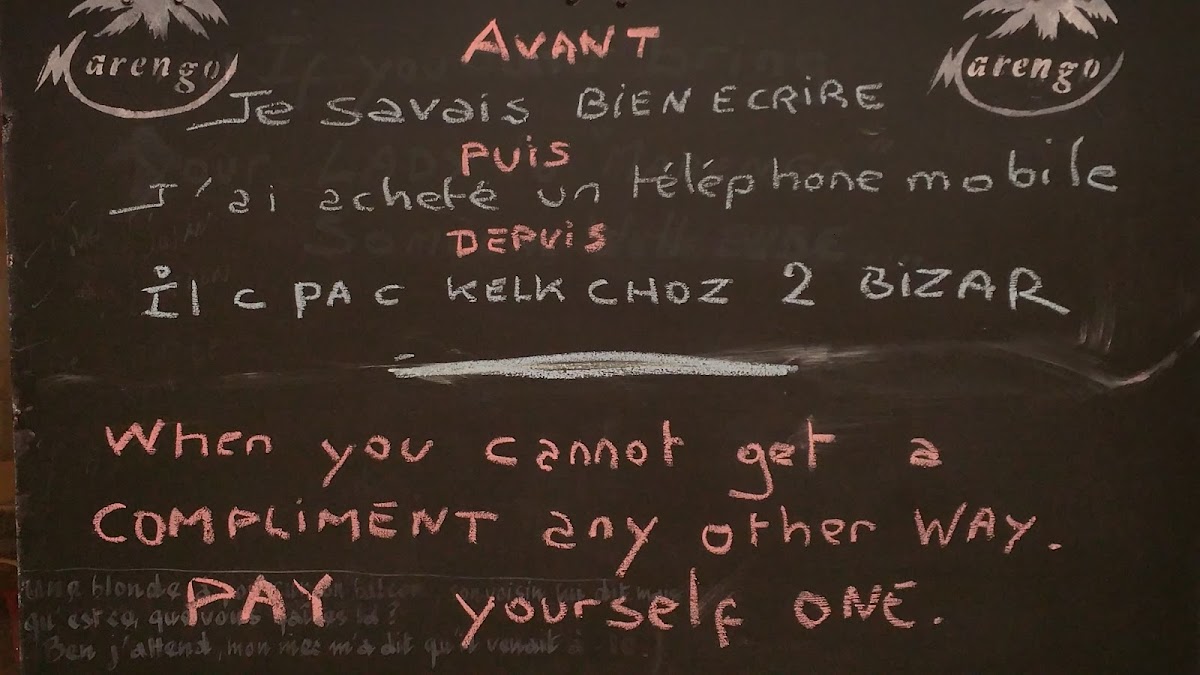 Marengo
Marengo
AVANT
Je savais BIEN ECRIRE
PUIS
J'ai acheté un téléphone mobile
DEPUIS
Il c PA c KELK CHOZ 2 BIZAR
When you cannot get a
COMPLIMENT any other WAY.
PAY yourself ONE.
une blonde
qu'est ce, que vous faites là?
Ben j'attend, mon mec m'a dit qu'il venait à